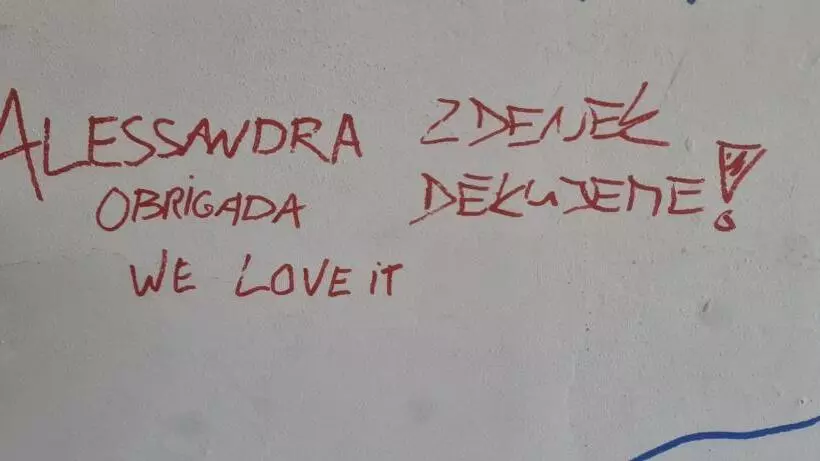 ALESSANDRA
OBRIGADA
WE LOVE iT
ZDENEK
DĚKUJEME!